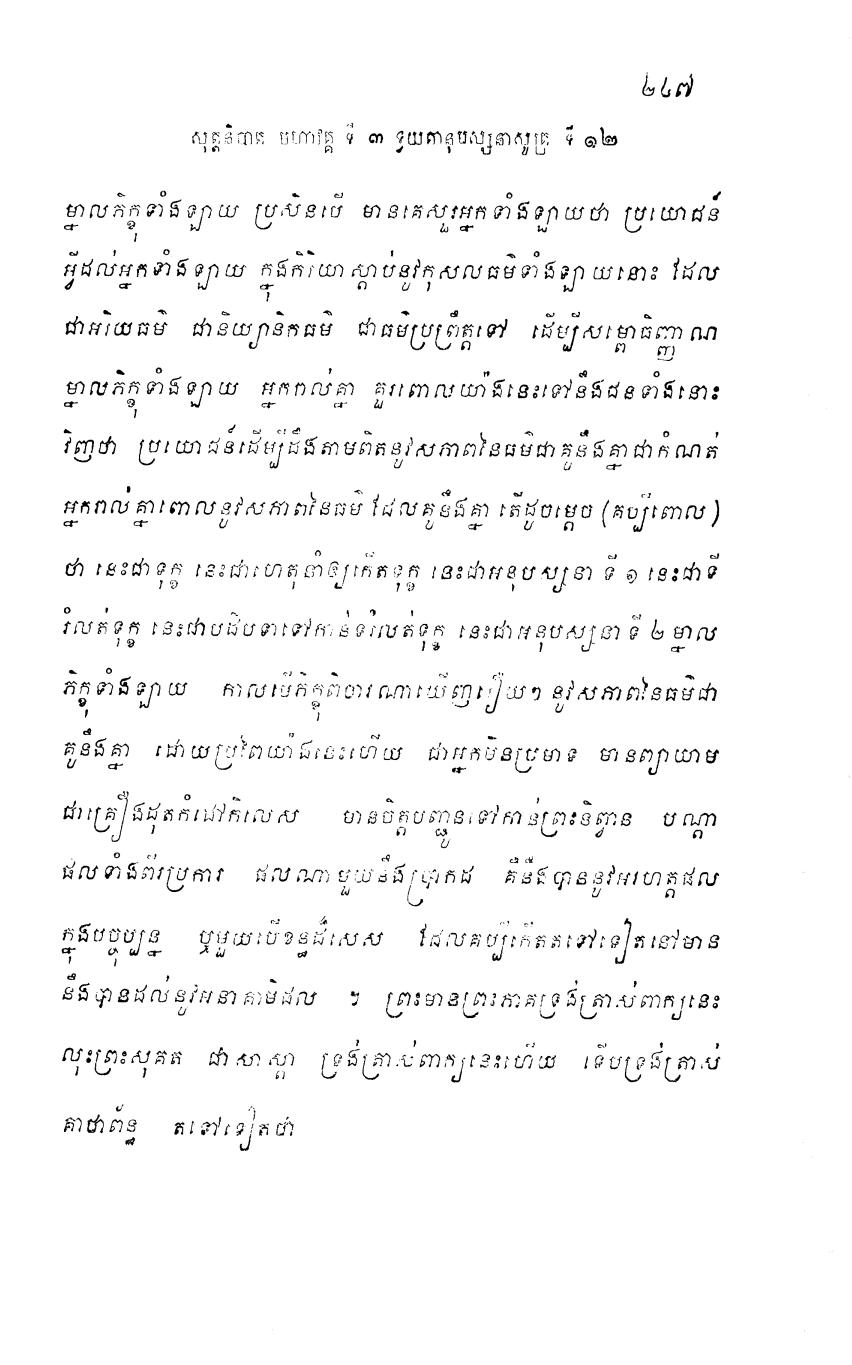 ២៤៧
សុត្តនិបាត មហាវគ្គ ទី ៣ ទ្វយតានុបស្សនាសូត្រ ទី ១២
ម្នាលភិក្ខុទាំងឡាយ ប្រសិនបើ មានគេសួរអ្នកទាំងឡាយថា ប្រយោជន៍
អ្វីដល់អ្នកទាំងឡាយ ក្នុងកិរិយាស្តាប់នូវកុសលធម៌ទាំងឡាយនោះ ដែល
ជាអរិយធម៌ ជានិយ្យានិកធម៌ ជាធម៌ប្រព្រឹត្តទៅ ដើម្បីសម្ពោធិញ្ញាណ
ម្នាលភិក្ខុទាំងឡាយ អ្នករាល់គ្នា គួរពោលយ៉ាងនេះទៅនឹងជនទាំងនោះ
វិញថា ប្រយោជន៍ដើម្បីដឹងតាមពិតនូវសភាពនៃធម៌ជាគូនឹងគ្នាជាកំណត់
អ្នករាល់គ្នាពោលនូវសភាពនៃធម៌ ដែលគូនឹងគ្នា តើដូចម្តេច (គប្បីពោល)
ថា នេះជាទុក្ខ នេះជាហេតុនាំឲ្យកើតទុក្ខ នេះជាអនុបស្សនា ទី ១ នេះជាទី
រំលត់ទុក្ខ នេះជាបដិបទាទៅកាន់ទីរំលត់ទុក្ខ នេះជាអនុបស្សនាទី ២ ម្នាល
ភិក្ខុទាំងឡាយ កាលបើភិក្ខុពិចារណាឃើញរឿយៗ នូវសភាពនៃធម៌ជា
គូនឹងគ្នា ដោយប្រពៃយ៉ាងនេះហើយ ជាអ្នកមិនប្រមាទ មានព្យាយាម
ជាគ្រឿងដុតកំដៅកិលេស មានចិត្តបញ្ជូនទៅកាន់ព្រះនិព្វាន បណ្តា
ផលទាំងពីរប្រការ ផលណាមួយនឹងប្រាកដ គឺនឹងបាននូវអរហត្តផល
ក្នុងបច្ចុប្បន្ន ឬមួយបើខន្ធដ៏សេស ដែលគប្បីកើតតទៅទៀតនៅមាន
នឹងបានដល់នូវអនាគាមិផល ។ ព្រះមានព្រះភាគទ្រង់ត្រាស់ពាក្យនេះ
លុះព្រះសុគត ជាសាស្តា ទ្រង់ត្រាស់ពាក្យនេះហើយ ទើបទ្រង់ត្រាស់
គាថាព័ន្ធ តទៅទៀតថា